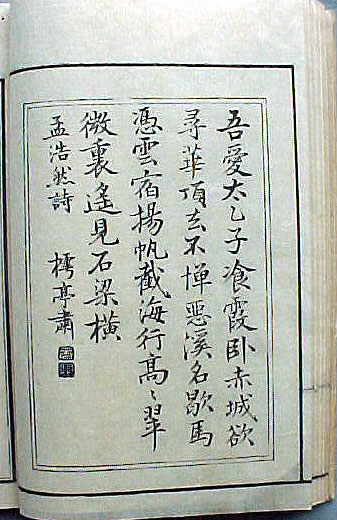 吾愛太乙子飡霞卧赤城欲
尋華頂去不憚惡溪名歇馬
憑雲宿揚帆截海行高〻翠
微裏遙見石梁橫
孟浩然詩 樗亭肅